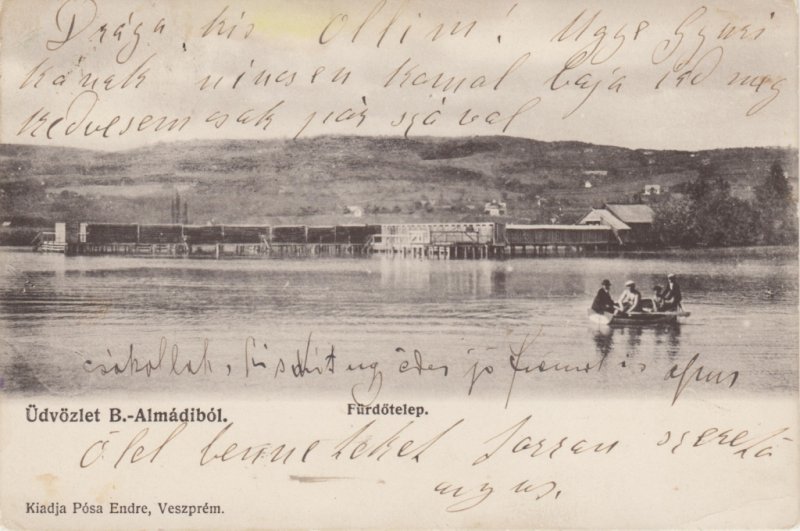 Drága kis Ollim! Ugye Gyuri
kának nincsen komol baja ird meg
kedvesem csak pár szával
csókollak, édes jó
Üdvözlet B.-Almádiból.
Fürdőtelep.
Ölel benneteket forran szerető
anyus.
Kiadja Pósa Endre, Veszprém.